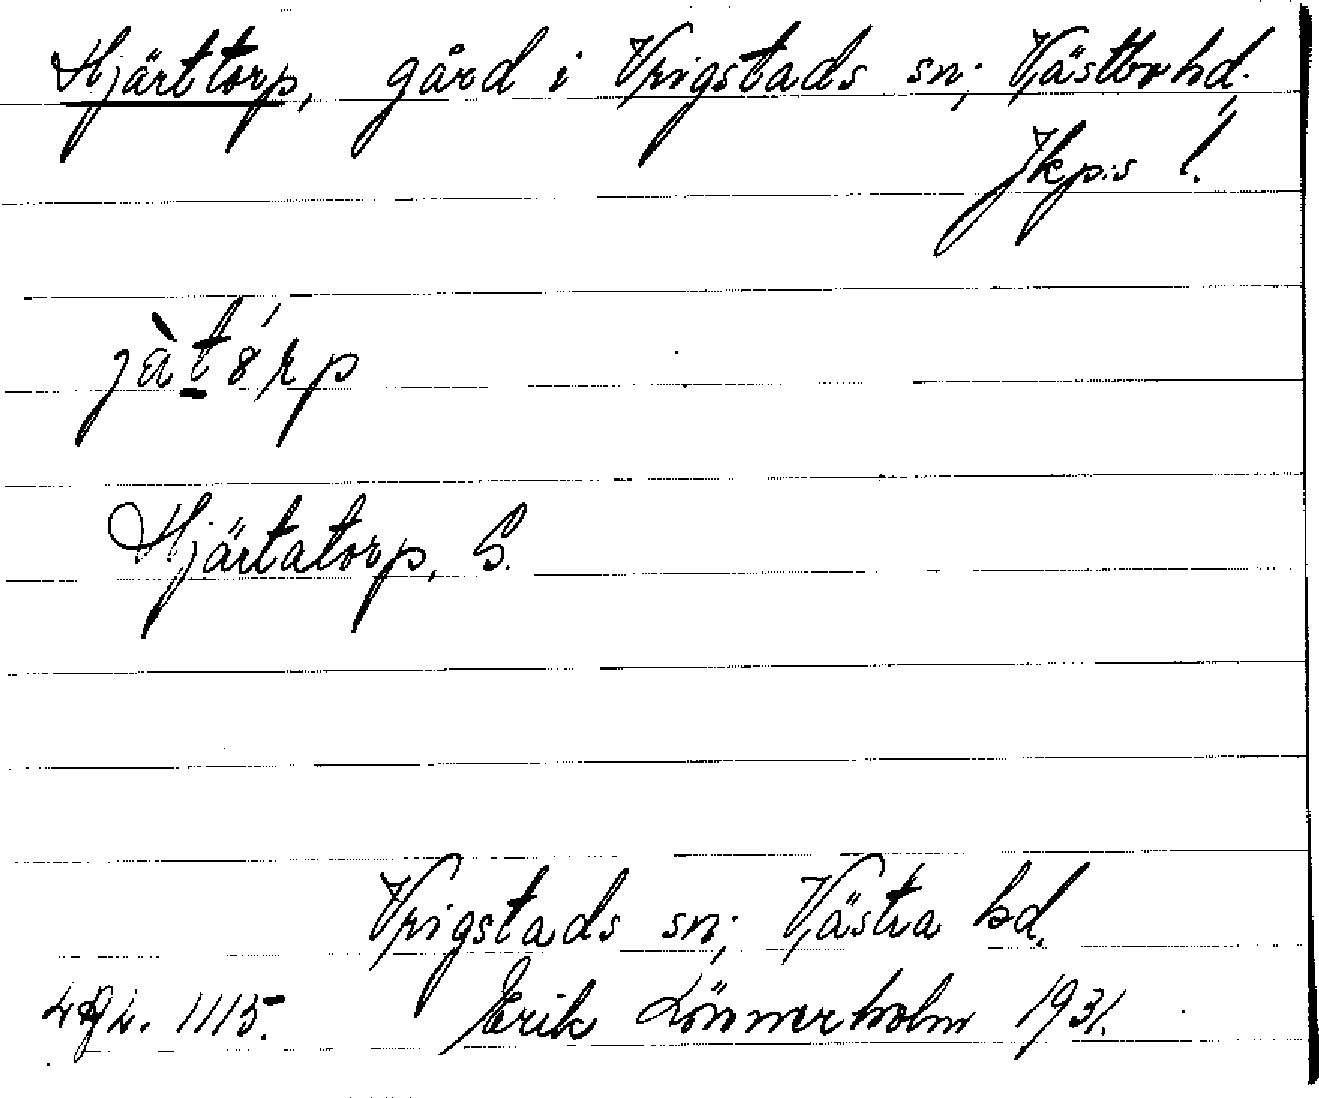 Hjärttorp, gård i Vrigstads sn; Västbo hd;
Jkp:s l.
Hjärtatorp, S.
Vrigstads sn; Västra hd.
1115. Erik Lönnerholm 1931.